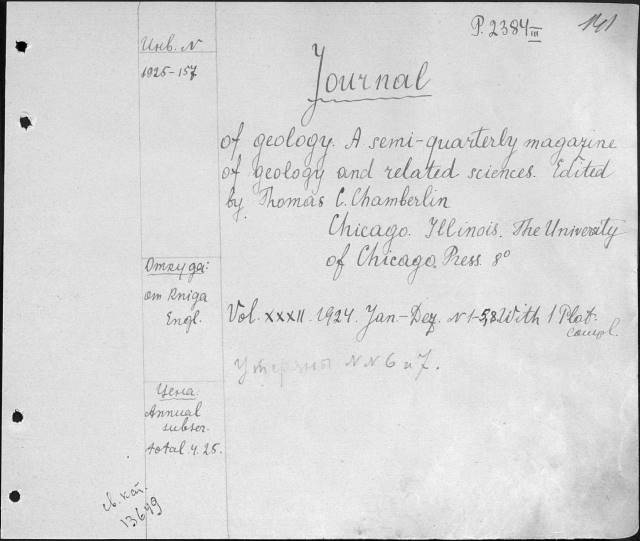 P. 2384 III
141
Инв. N
1925-157
Journal
of geology. A semi-quarterly magazine
of geology and related sciences. Edited
by Thomas C. Chamberlin
Chicago. Illinois. The University
of Chicago Press. 8°
Откуда:
от Kniga
Engl.
Vol. XXXII. 1924. Jan.-Dez. N 1-5,8 With 1 Plat.
compl.
Утеряны N N 6 и 7.
Цена:
Annual
subscr.
total 4. 25.
св. кат.
13649